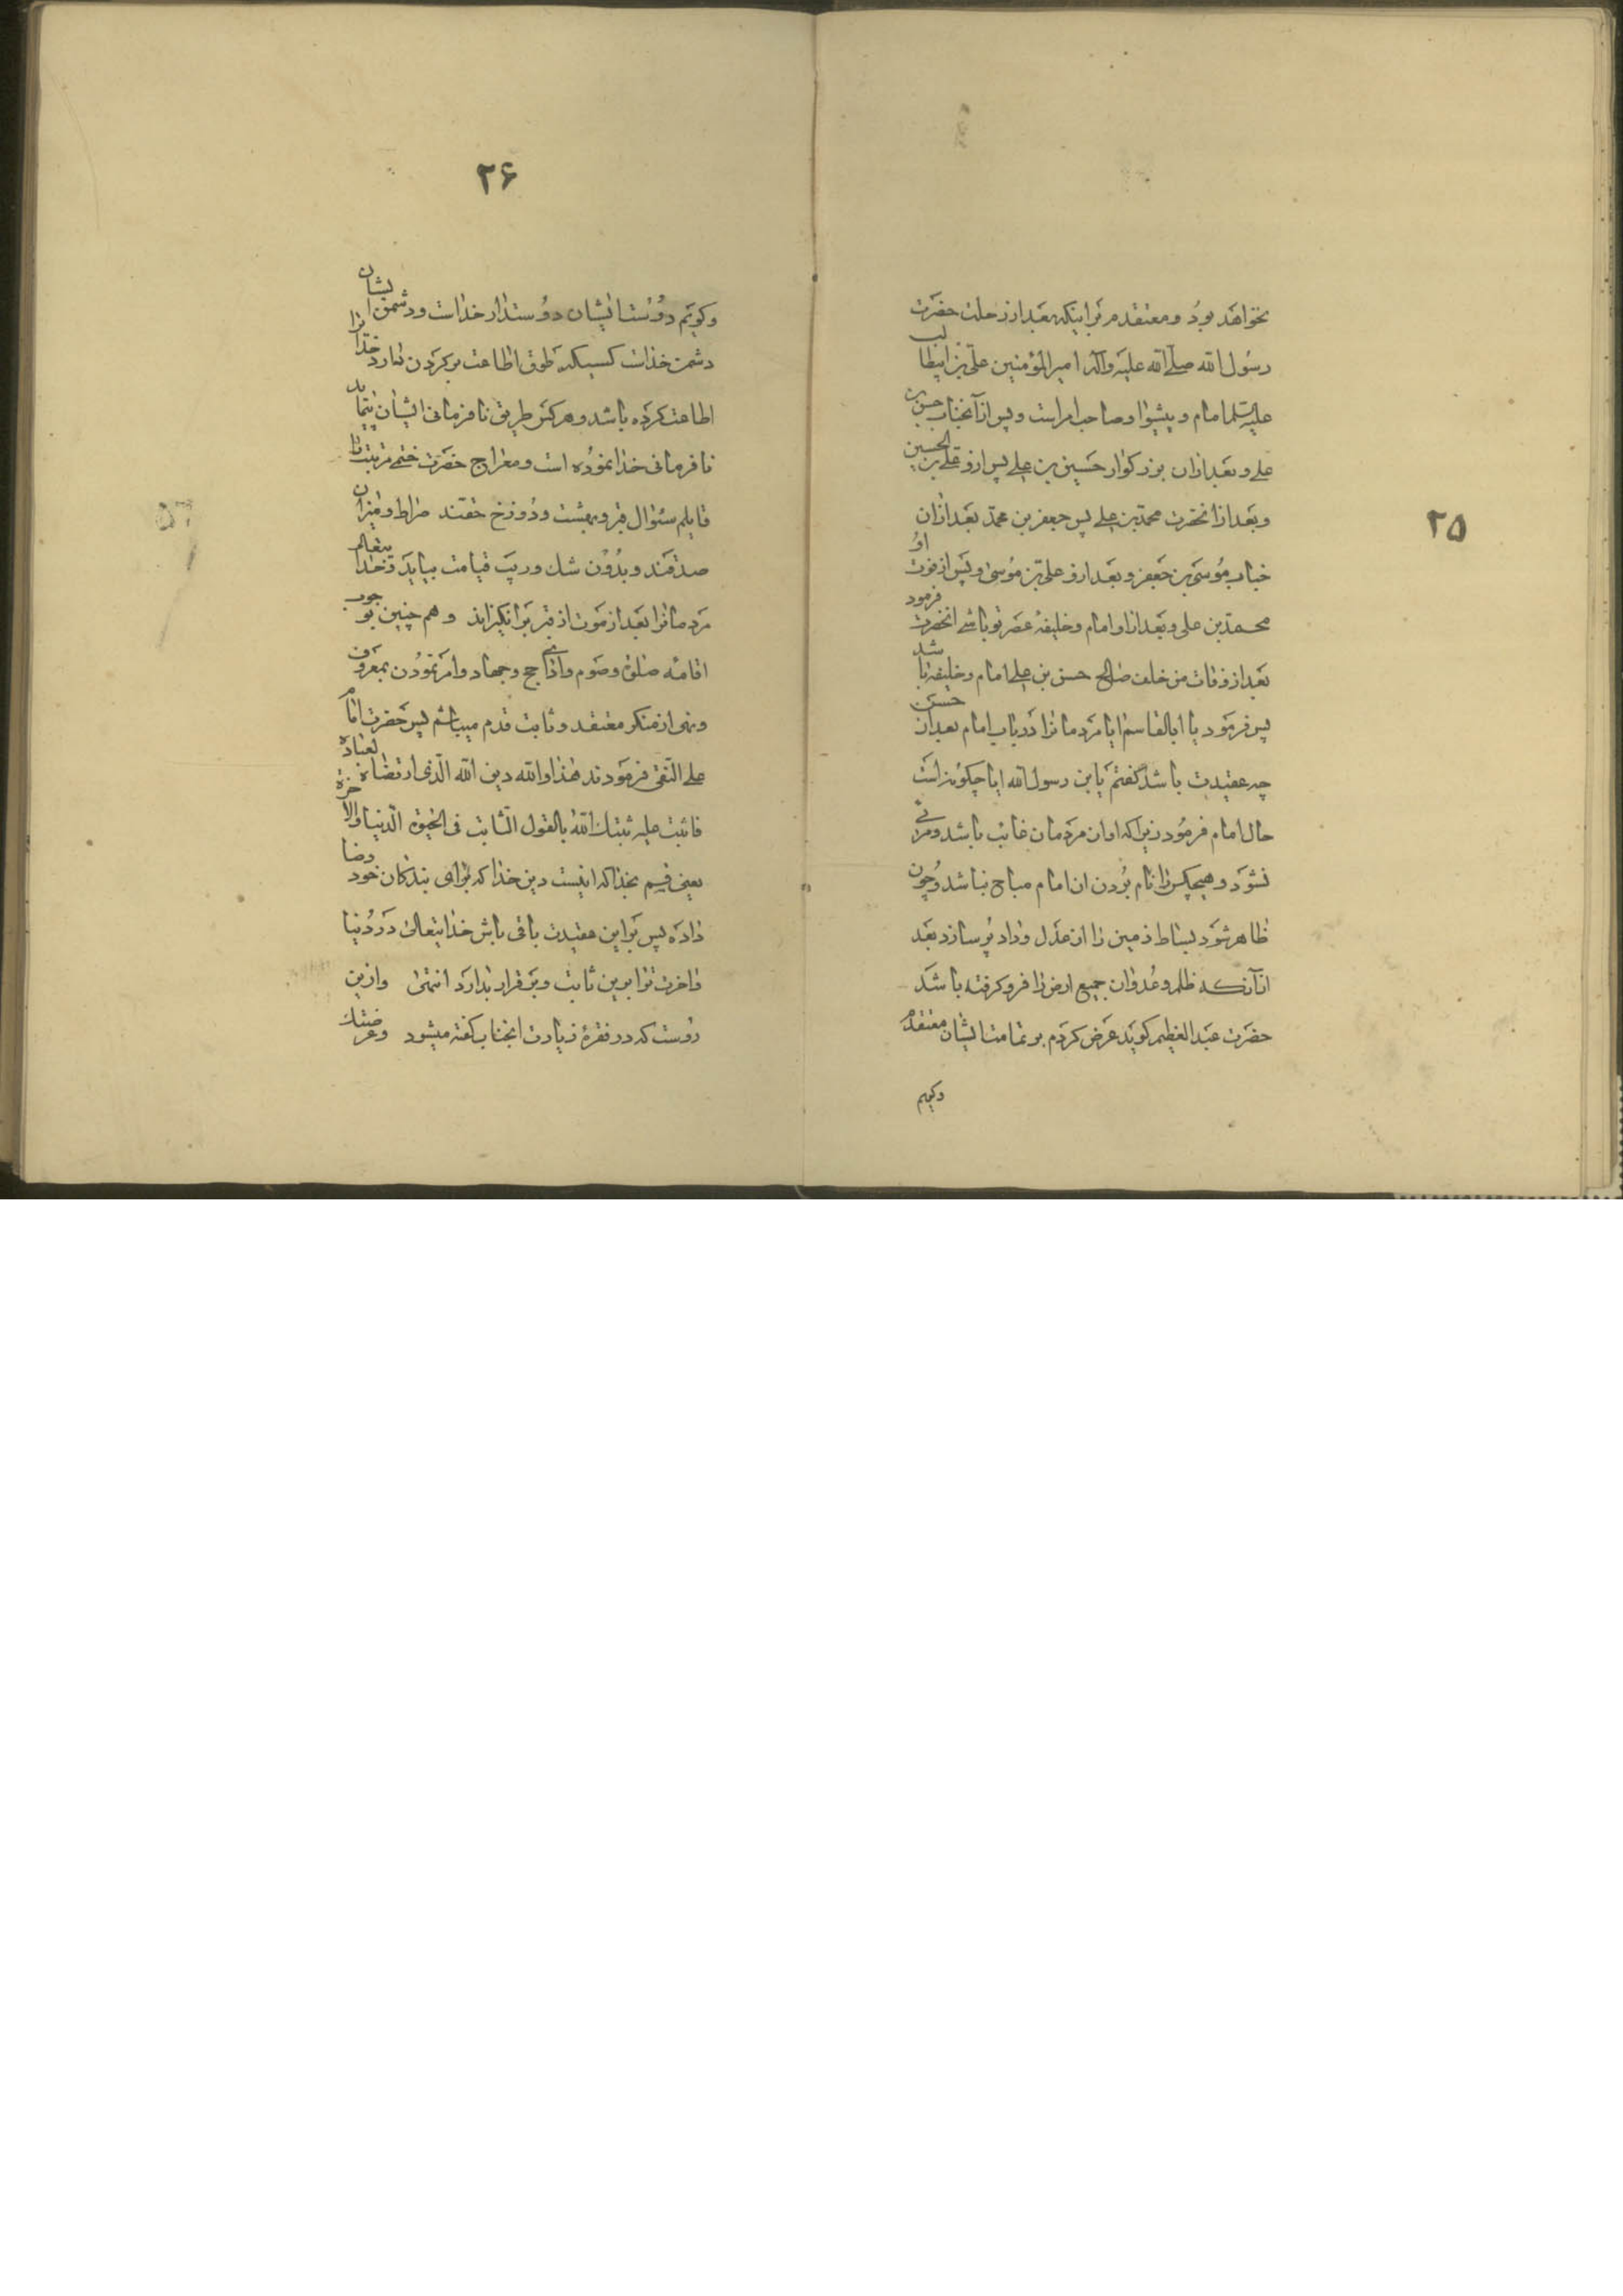 ۲۵
نخواهد بود و معتقدم بر اینکه بعد از رحلت حضرت
رسول الله صلی الله علیه وآله امیر المؤمنین علی بن ابیطالب
علیه السلم امام و پیشوا و صاحب امر است و پس از آنجناب حسن بن
علی و بعد از ان بزرکوار حسین بن علی پس ازو علی بن الحسین
و بعد از انحضرت محمد بن علی پس جعفر بن محمد بعد از ان
جناب موسی بن جعفر و بعد ازو علی بن موسی و پس از فوت او
محمد بن علی و بعد از او امام و خلیفهٔ عصر تو باشی انحضرت فرمود
بعد از وفات من خلف صالح حسن بن علی امام و خلیفه باشد
پس فرمود یا ابالقاسم ایا مردمانرا در باب امام بعد از حسن
چه عقیدت باشد گفتم یابن رسول الله ایا چکونه است
حال امام فرمود زیرا که او ان مردمان غائب باشد و مرئی
نشود و هیچکس را نام بردن ان امام مباح نباشد و چون
ظاهر شود بساط زمین را از عدل و داد پر سازد بعد
از آنکه ظلم و عدوان جمیع ارض را فرو کرفته باشد
حضرت عبد العظیم کوید عرض کردم بر تمامت ایشان معتقدم
وکویم
۲۶
وکویم دوست ایشان دوستدار خداست و دشمن ایشان
دشمن خداست کسیکه طوق اطاعت بر کردن دارد خدا را
اطاعت کرده باشد و هر کس طریق نافرمانی ایشان پیماید
نافرمانی خدا نموده است و معراج حضرت ختمی مرتبت را
قایلم سئوال قبر و بهشت و دوزخ حقند صراط و میزان
صدقند و بدون شک و ریب قیامت بیاید و خدا یتعالی
مردمانرا بعد از موت از قبر برانکیزاند و هم چنین بوجوب
اقامه صلوة و صوم و ادای حج و جهاد و امر نمودن بمعروف
و نهی از منکر معتقد و ثابت قدم میباشم پس حضرت امام
علی النقی فرمودند هذا والله دین الله الذی ارتضاه لعباده
فاثبت علیه ثبتک الله بالقول الثابت فی الحیوة الدنیا والاخرة
یعنی قسم بخدا که اینست دین خدا که برای بندکان خود رضا
داده پس بر این عقیدت باقی باش خدا یتعالی در دنیا
و اخرت ترا برین ثابت و برقرار بدارد انتهی و ازین
روست که در فقرهٔ زیارت انجناب کفته میشود وعرضتک